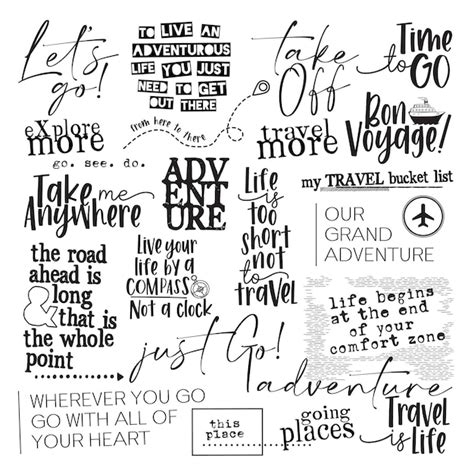 Let's
go!
TO LIVE AN
ADVENTUROUS
LIFE YOU JUST
NEED TO GET
OUT THERE
take
Off
Time
to GO
explore
more
go. see. do.
from here to there
travel
more
Bon
Voyage!
Take me
Anywhere
ADV
ENT
URE
Life
is
too
short
not
to
travel
my TRAVEL bucket list
OUR
GRAND
ADVENTURE
the road
ahead is
long
& that is
the whole
point
Live your
life by a
COMPASS
Not a clock
life begins
at the end
of your
comfort zone
just Go!
adventure
WHEREVER YOU GO
GO WITH ALL OF
YOUR HEART
this
place
going
places
Travel
is Life